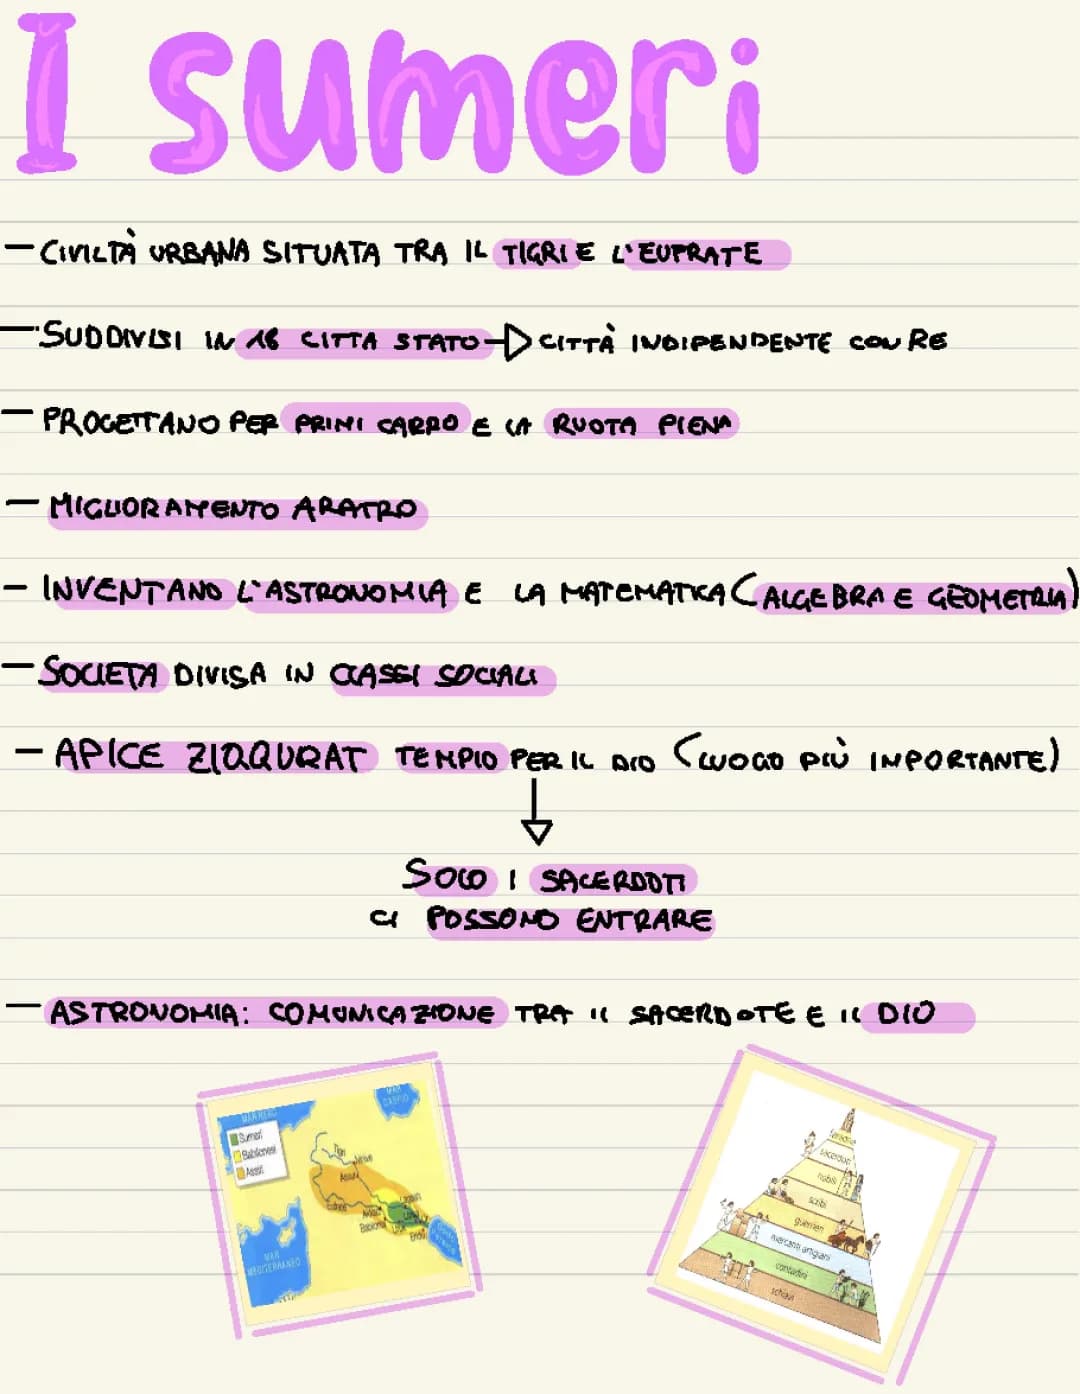 I sumeri
— CIVILTÀ URBANA SITUATA TRA IL TIGRI E L'EUFRATE
— SUDDIVISI IN 18 CITTA STATO → CITTÀ INDIPENDENTE CON RE
— PROGETTANO PER PRIMI CARRO E LA RUOTA PIENA
— MIGLIORAMENTO ARATRO
— INVENTANO L'ASTRONOMIA E LA MATEMATICA (ALGEBRA E GEOMETRIA)
— SOCIETA DIVISA IN CLASSI SOCIALI
— APICE ZIQQURAT TEMPIO PER IL DIO (LUOGO PIÙ IMPORTANTE)
↓
SOLO I SACERDOTI
CI POSSONO ENTRARE
— ASTRONOMIA: COMUNICAZIONE TRA IL SACERDOTE E IL DIO
MAR NERO
MAR
CASPIO
Sumeri
Babilonesi
Assiri
Ninive
Assur
Lagash
Babilonia
Uruk
Eridu
MAR
MEDITERRANEO
sacerdoti
nobili
scribi
guerrieri
mercanti artigiani
contadini
schiavi